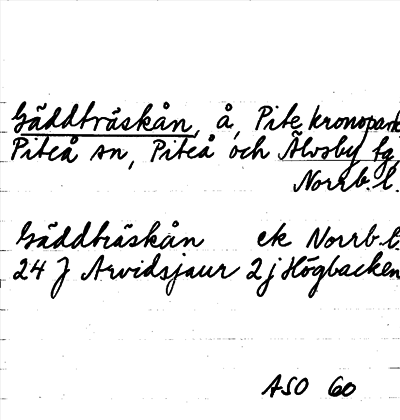 Gäddträskån, å, Pite kronopark
Piteå sn, Piteå och Älvsby tg
Norrb. l.
Gäddträskån ek Norrb. l.
24 J Arvidsjaur 2 j Högbacken
ASO 60